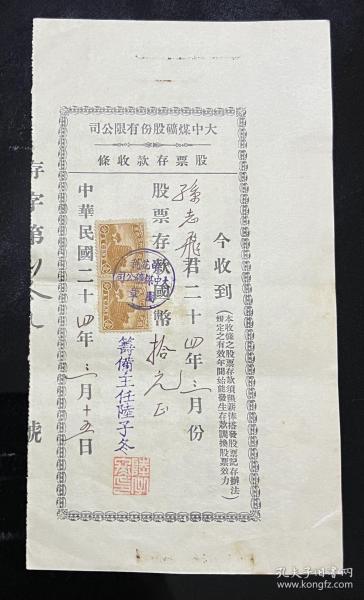 大中煤礦股份有限公司
股票存款收條
今收到
(本收條之股票存款須俟新俸搭發股票記存辦法
規定之有效年開始能發生存款調換股票效力)
孫志飛君二十四年三月份
股票存款國幣拾元正
籌備主任陸子冬
中華民國二十四年三月十五日
存字第 號
孔夫子旧书网